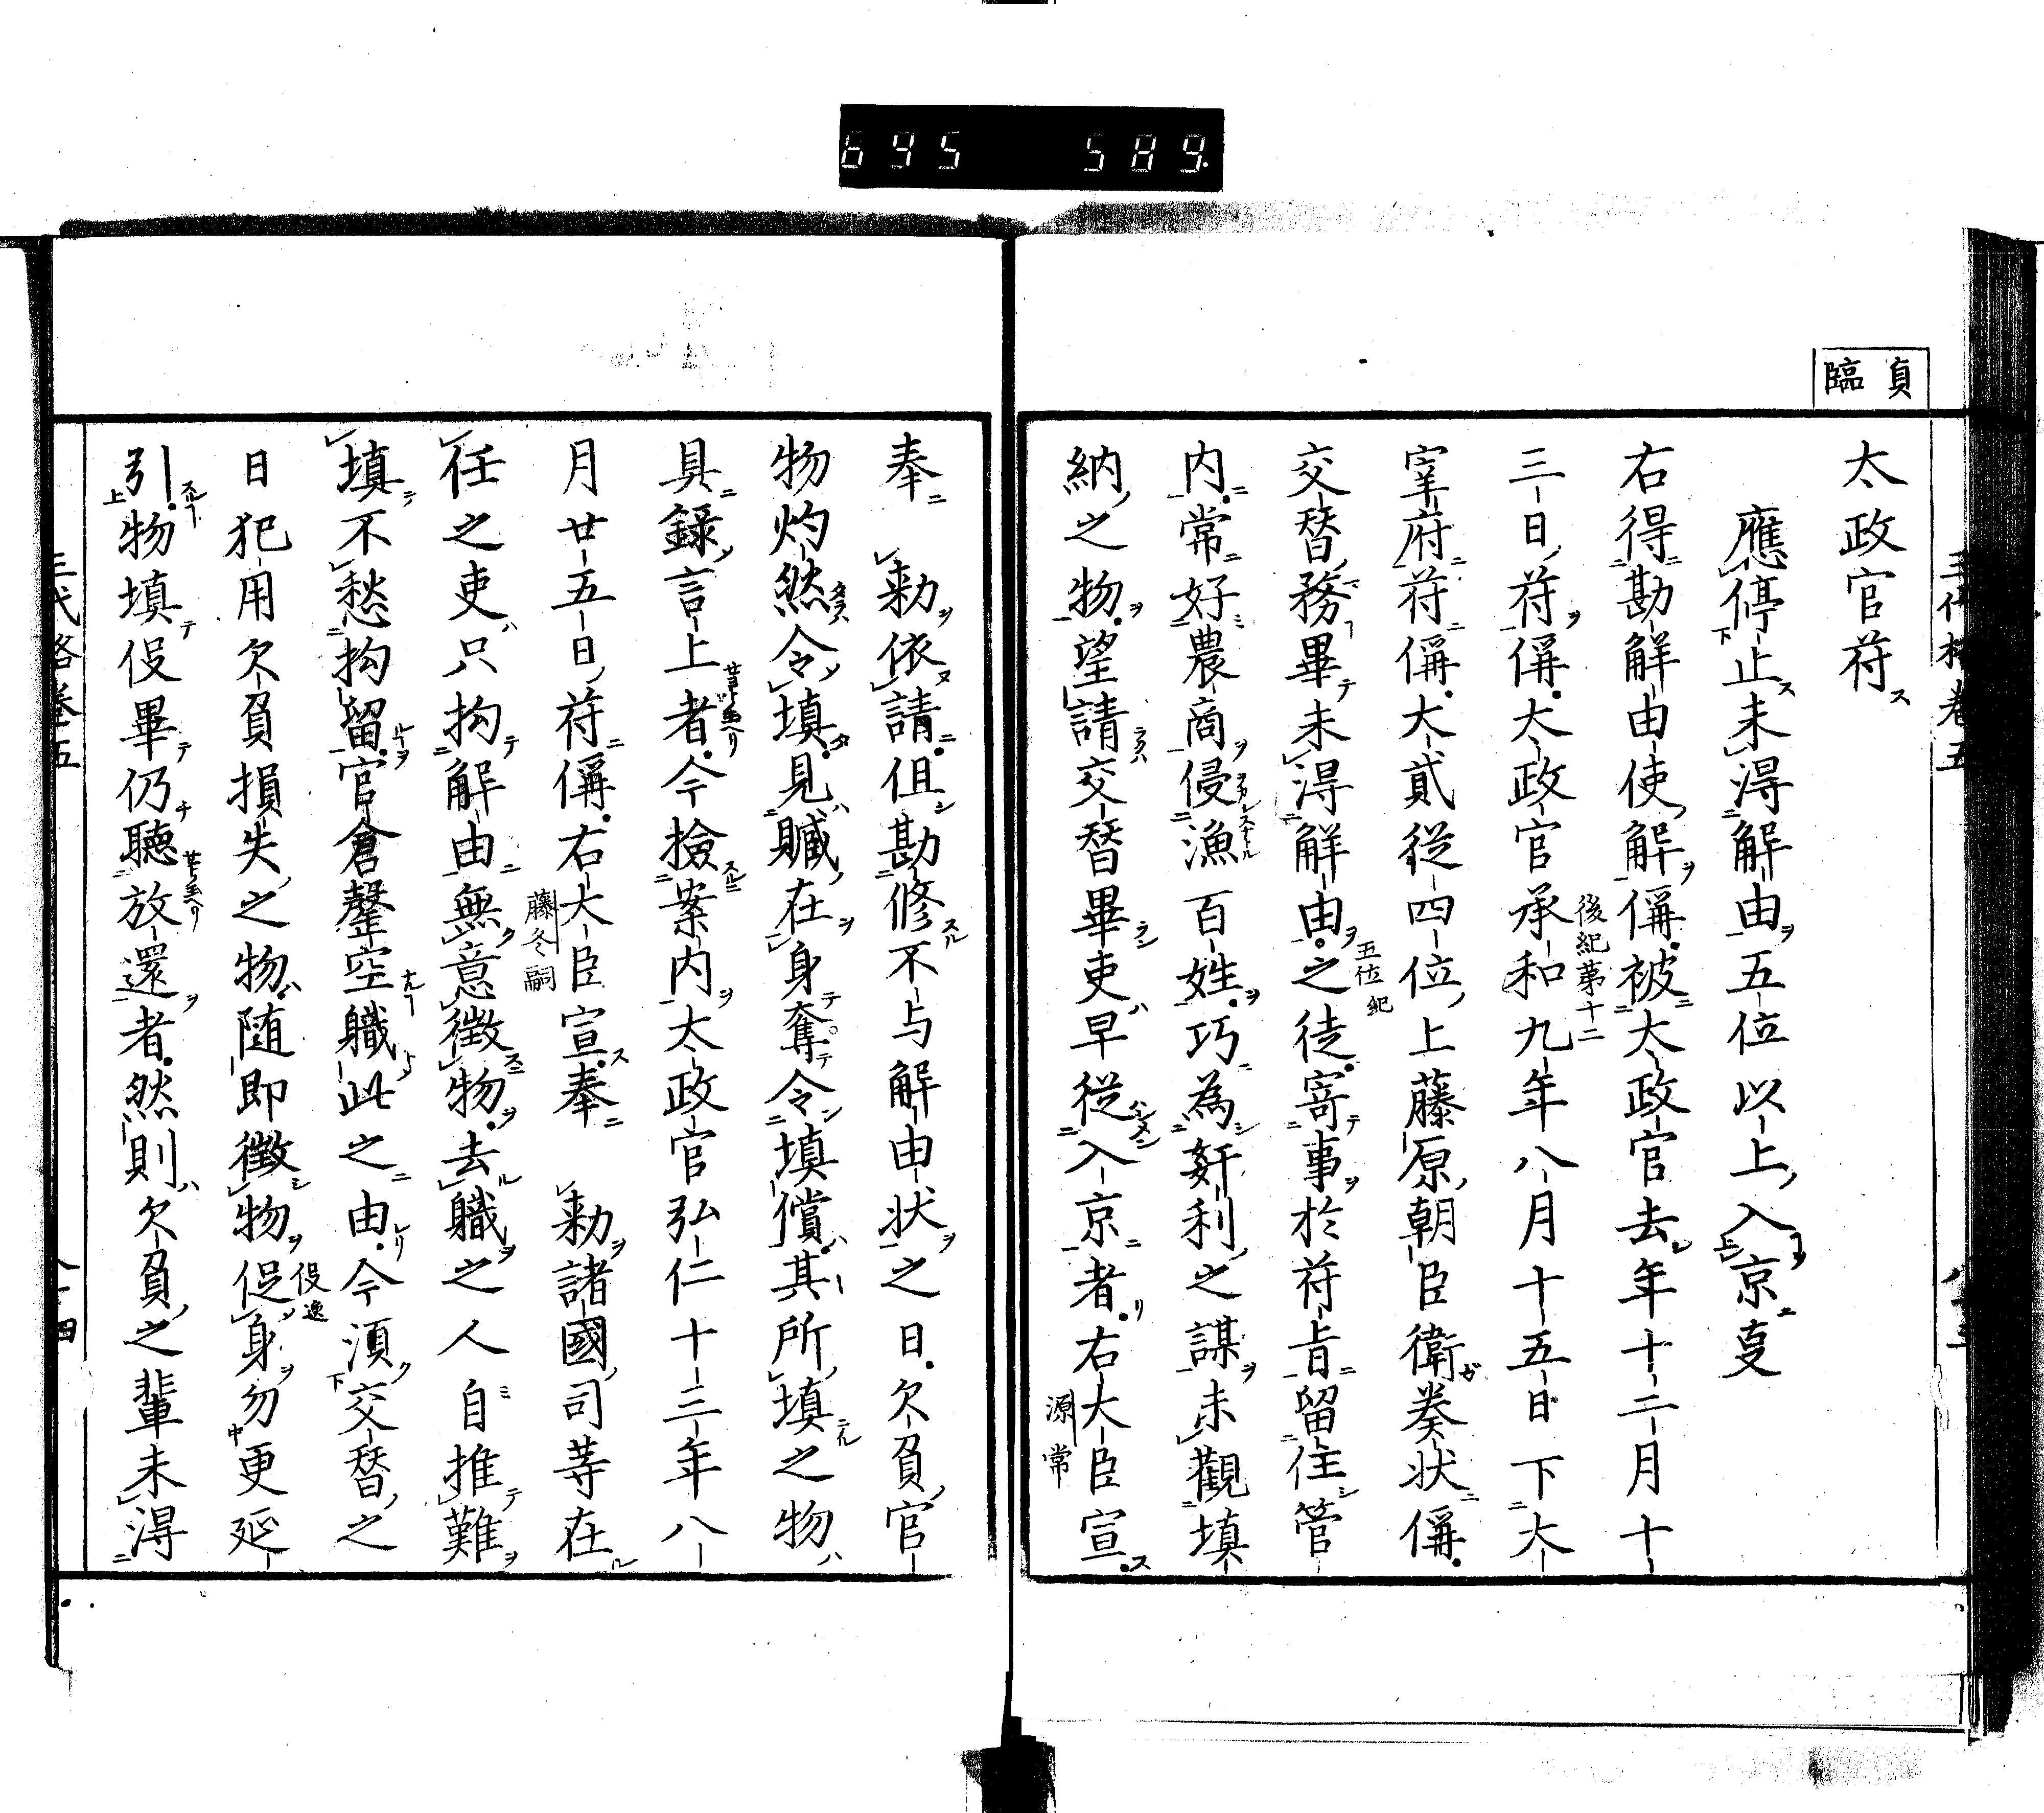 695 589.
貞臨
太政官符
應停止未得解由五位以上入京叓
右得勘解由使解偁被太政官去年十二月十
三日符偁太政官承和九年八月十五日下大
後紀第十二
宰府符偁大貳從四位上藤原朝臣衛奏状偁
五位紀
交替務畢未得解由之徒寄事於符旨留住管
内常好農商侵漁百姓巧為姧利之謀未觀填
納之物望請交替畢吏早從入京者右大臣宣
源常
奉勅依請但勘修不与解由状之日欠負官
物灼然令填見贓在身奪令填償其所填之物
具録言上者今撿案内太政官弘仁十三年八
月廿五日符偁右大臣宣奉勅諸國司等在
藤冬嗣
任之吏只拘解由無意徴物去職之人自推難
填不愁拘留官倉罄空職此之由今湏交替之
日犯用欠負損失之物随即徴物促身勿更延
役逸
引物填役畢仍聴放還者然則欠負之輩未得
三代格巻五